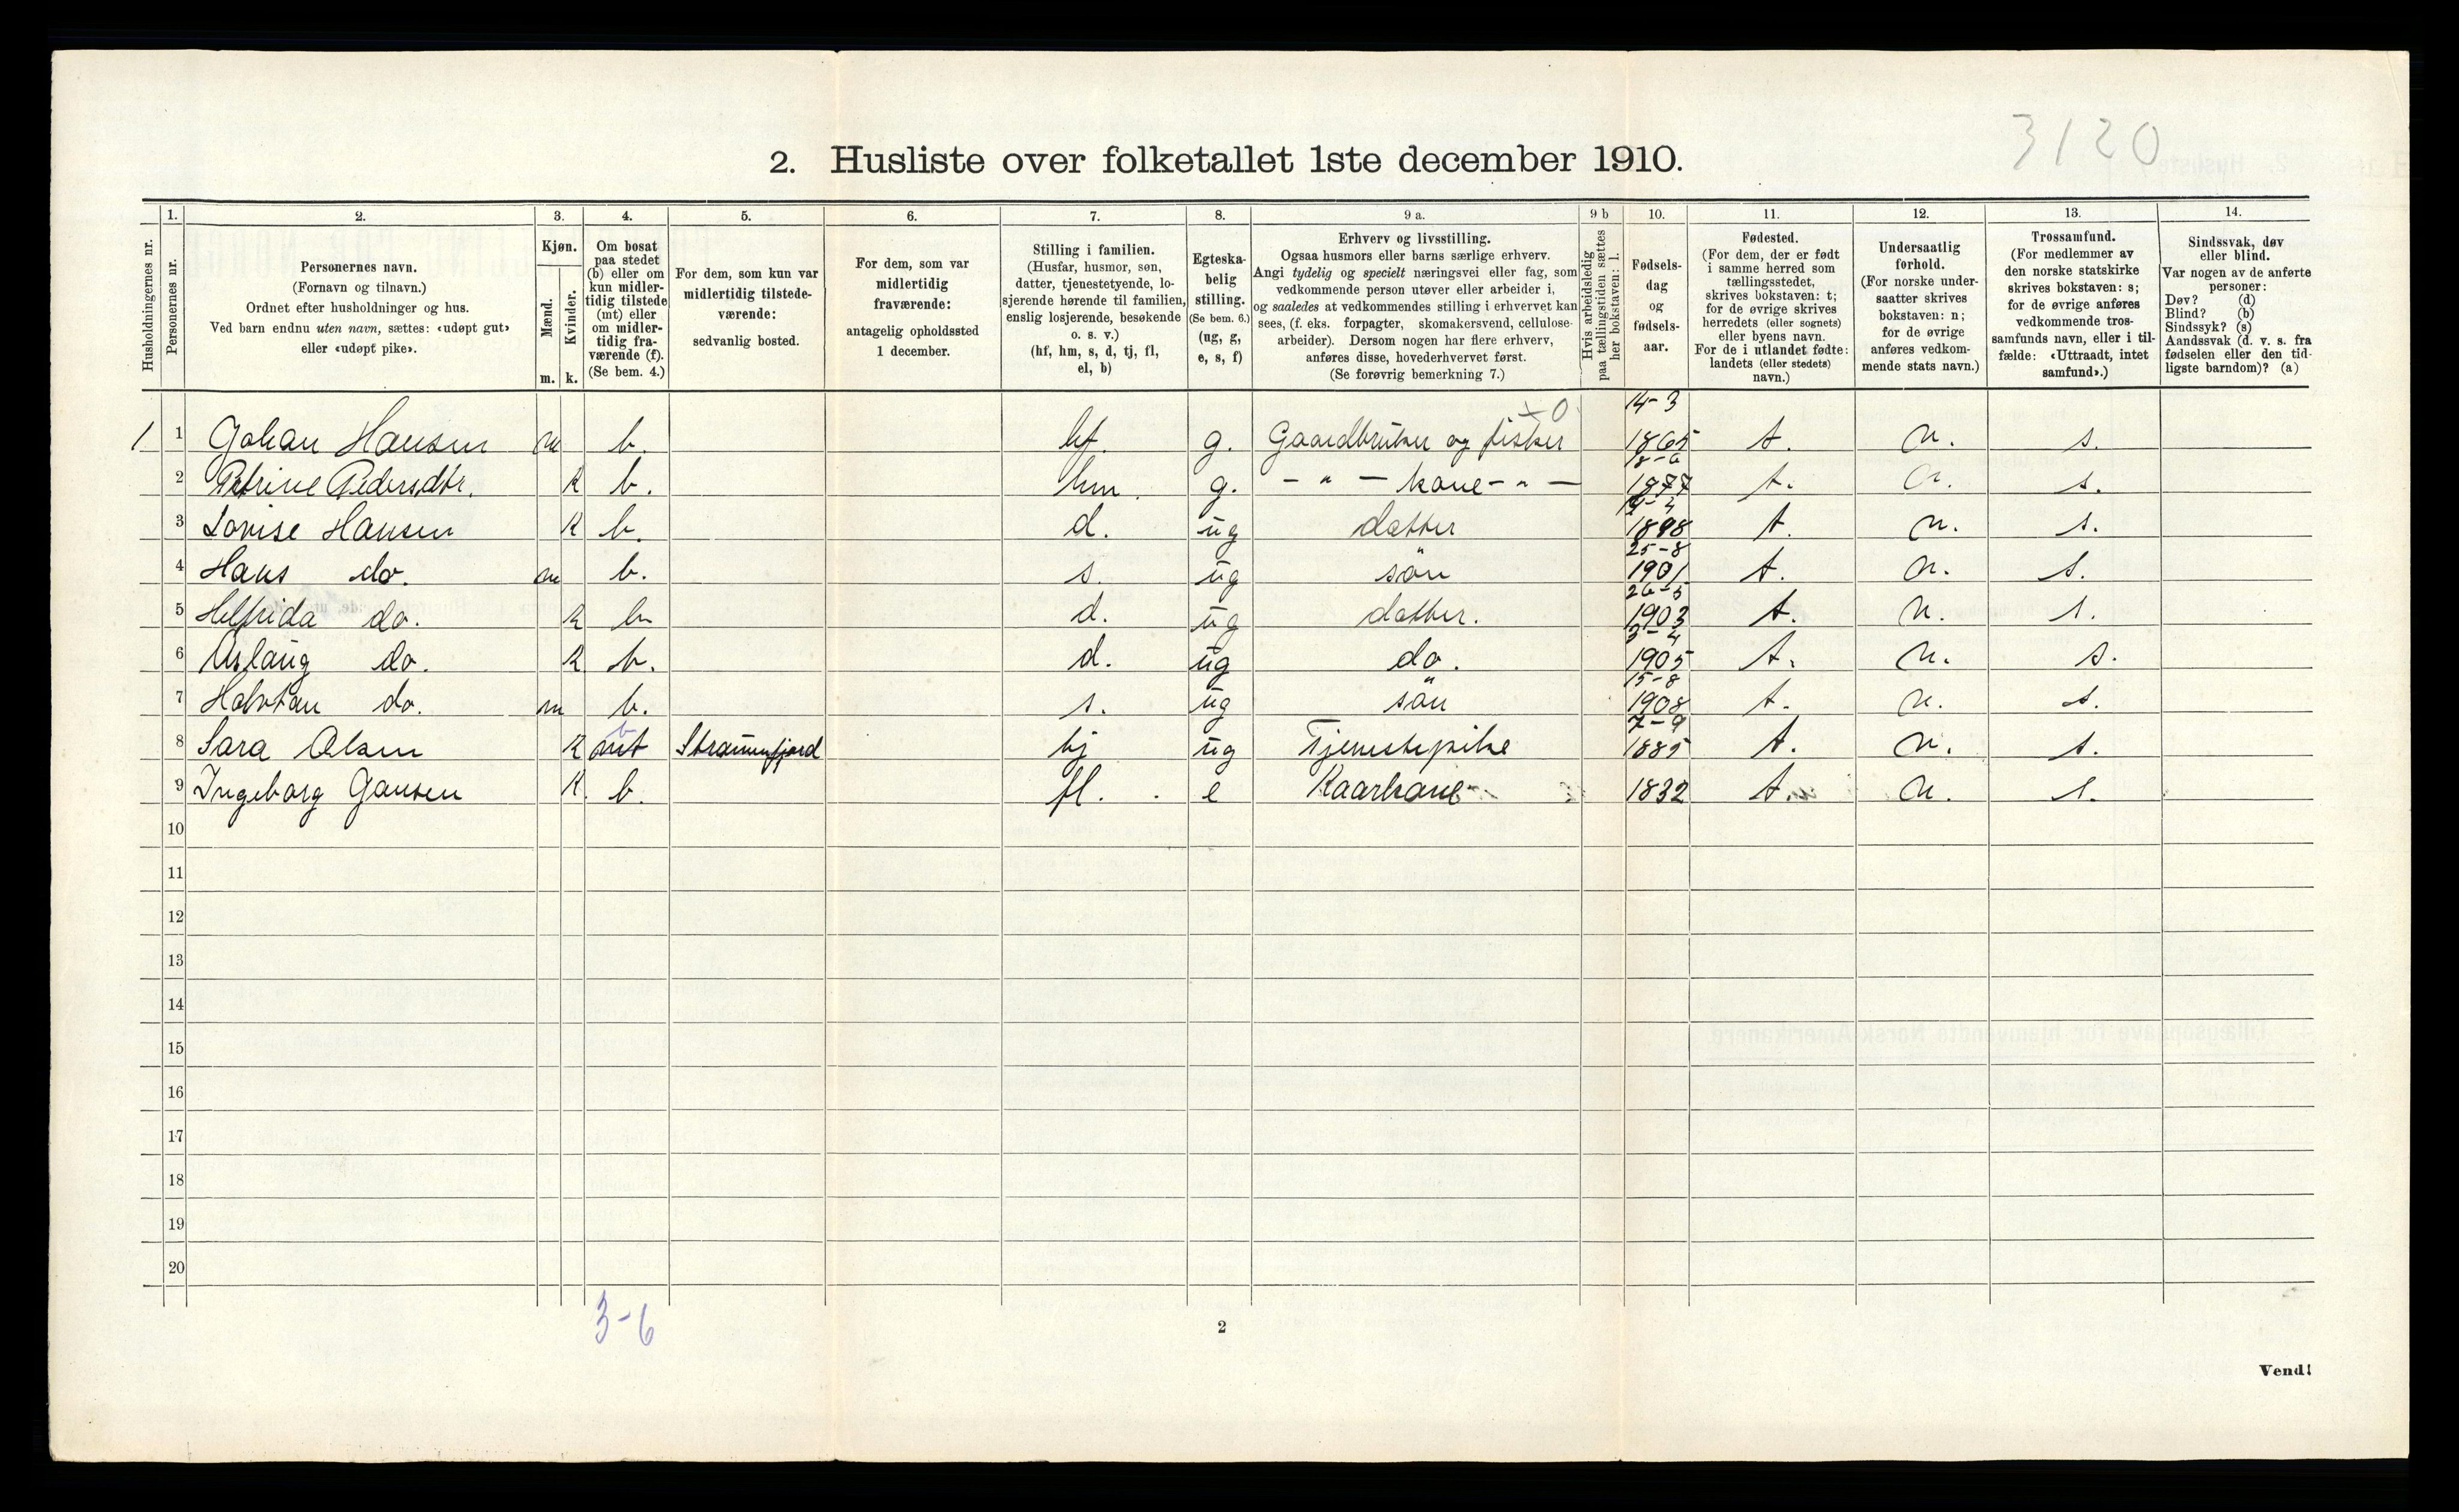 3120
2. Husliste over folketallet 1ste december 1910.
Husholdningernes nr.
1. Personernes nr.
2. Personernes navn.
(Fornavn og tilnavn.)
Ordnet efter husholdninger og hus.
Ved barn endnu uten navn, sættes: «udøpt gut»
eller «udøpt pike».
3. Kjøn.
Mænd. m.
Kvinder. k.
4. Om bosat
paa stedet
(b) eller om
kun midler-
tidig tilstede
(mt) eller
om midler-
tidig fra-
værende (f).
(Se bem. 4.)
5. For dem, som kun var
midlertidig tilstede-
værende:
sedvanlig bosted.
6. For dem, som var
midlertidig
fraværende:
antagelig opholdssted
1 december.
7. Stilling i familien.
(Husfar, husmor, søn,
datter, tjenestetyende, lo-
sjerende hørende til familien,
enslig losjerende, besøkende
o. s. v.)
(hf, hm, s, d, tj, fl,
el, b)
8. Egteska-
belig
stilling.
(Se bem. 6.)
(ug, g,
e, s, f)
9 a. Erhverv og livsstilling.
Ogsaa husmors eller barns særlige erhverv.
Angi tydelig og specielt næringsvei eller fag, som
vedkommende person utøver eller arbeider i,
og saaledes at vedkommendes stilling i erhvervet kan
sees, (f. eks. forpagter, skomakersvend, cellulose-
arbeider). Dersom nogen har flere erhverv,
anføres disse, hovederhvervet først.
(Se forøvrig bemerkning 7.)
9 b Hvis arbeidsledig
paa tællingstiden sættes
her bokstaven: l.
10. Fødsels-
dag
og
fødsels-
aar.
11. Fødested.
(For dem, der er født
i samme herred som
tællingsstedet,
skrives bokstaven: t;
for de øvrige skrives
herredets (eller sognets)
eller byens navn.
For de i utlandet fødte:
landets (eller stedets)
navn.)
12. Undersaatlig
forhold.
(For norske under-
saatter skrives
bokstaven: n;
for de øvrige
anføres vedkom-
mende stats navn.)
13. Trossamfund.
(For medlemmer av
den norske statskirke
skrives bokstaven: s;
for de øvrige anføres
vedkommende tros-
samfunds navn, eller i til-
fælde: «Uttraadt, intet
samfund».)
14. Sindssvak, døv
eller blind.
Var nogen av de anførte
personer:
Døv? (d)
Blind? (b)
Sindssyk? (s)
Aandssvak (d. v. s. fra
fødselen eller den tid-
ligste barndom)? (a)
1 1 Johan Hansen m b. hf. g. Gaardbruker og fisker 14-3 1865 t. n. s.
2 Petrine Pedersdtr. K b. hm. g. - " - kone - " - 18-6 1877 t. n. s.
3 Lovise Hansen K b. d. ug datter 1898 t. n. s.
4 Hans do. m b. s. ug sön 25-8 1901 t. n. s.
5 Helfrida do. K b d. ug datter. 26-5 1903 t. n. s.
6 Aslaug do. K b. d. ug do. 3-4 1905 t. n. s.
7 Halvtan do. m b. s. ug sön 15-8 1908 t. n. s.
8 Sara Olsen K mt b Straumfjord tj ug Tjenestepike 7-9 1885 t. n. s.
9 Ingeborg Jansen K. b. fl. e Kaarkone 1832 t. n. s.
10
11
12
13
14
15
16
17
18
19
20
3-6
2
Vend!